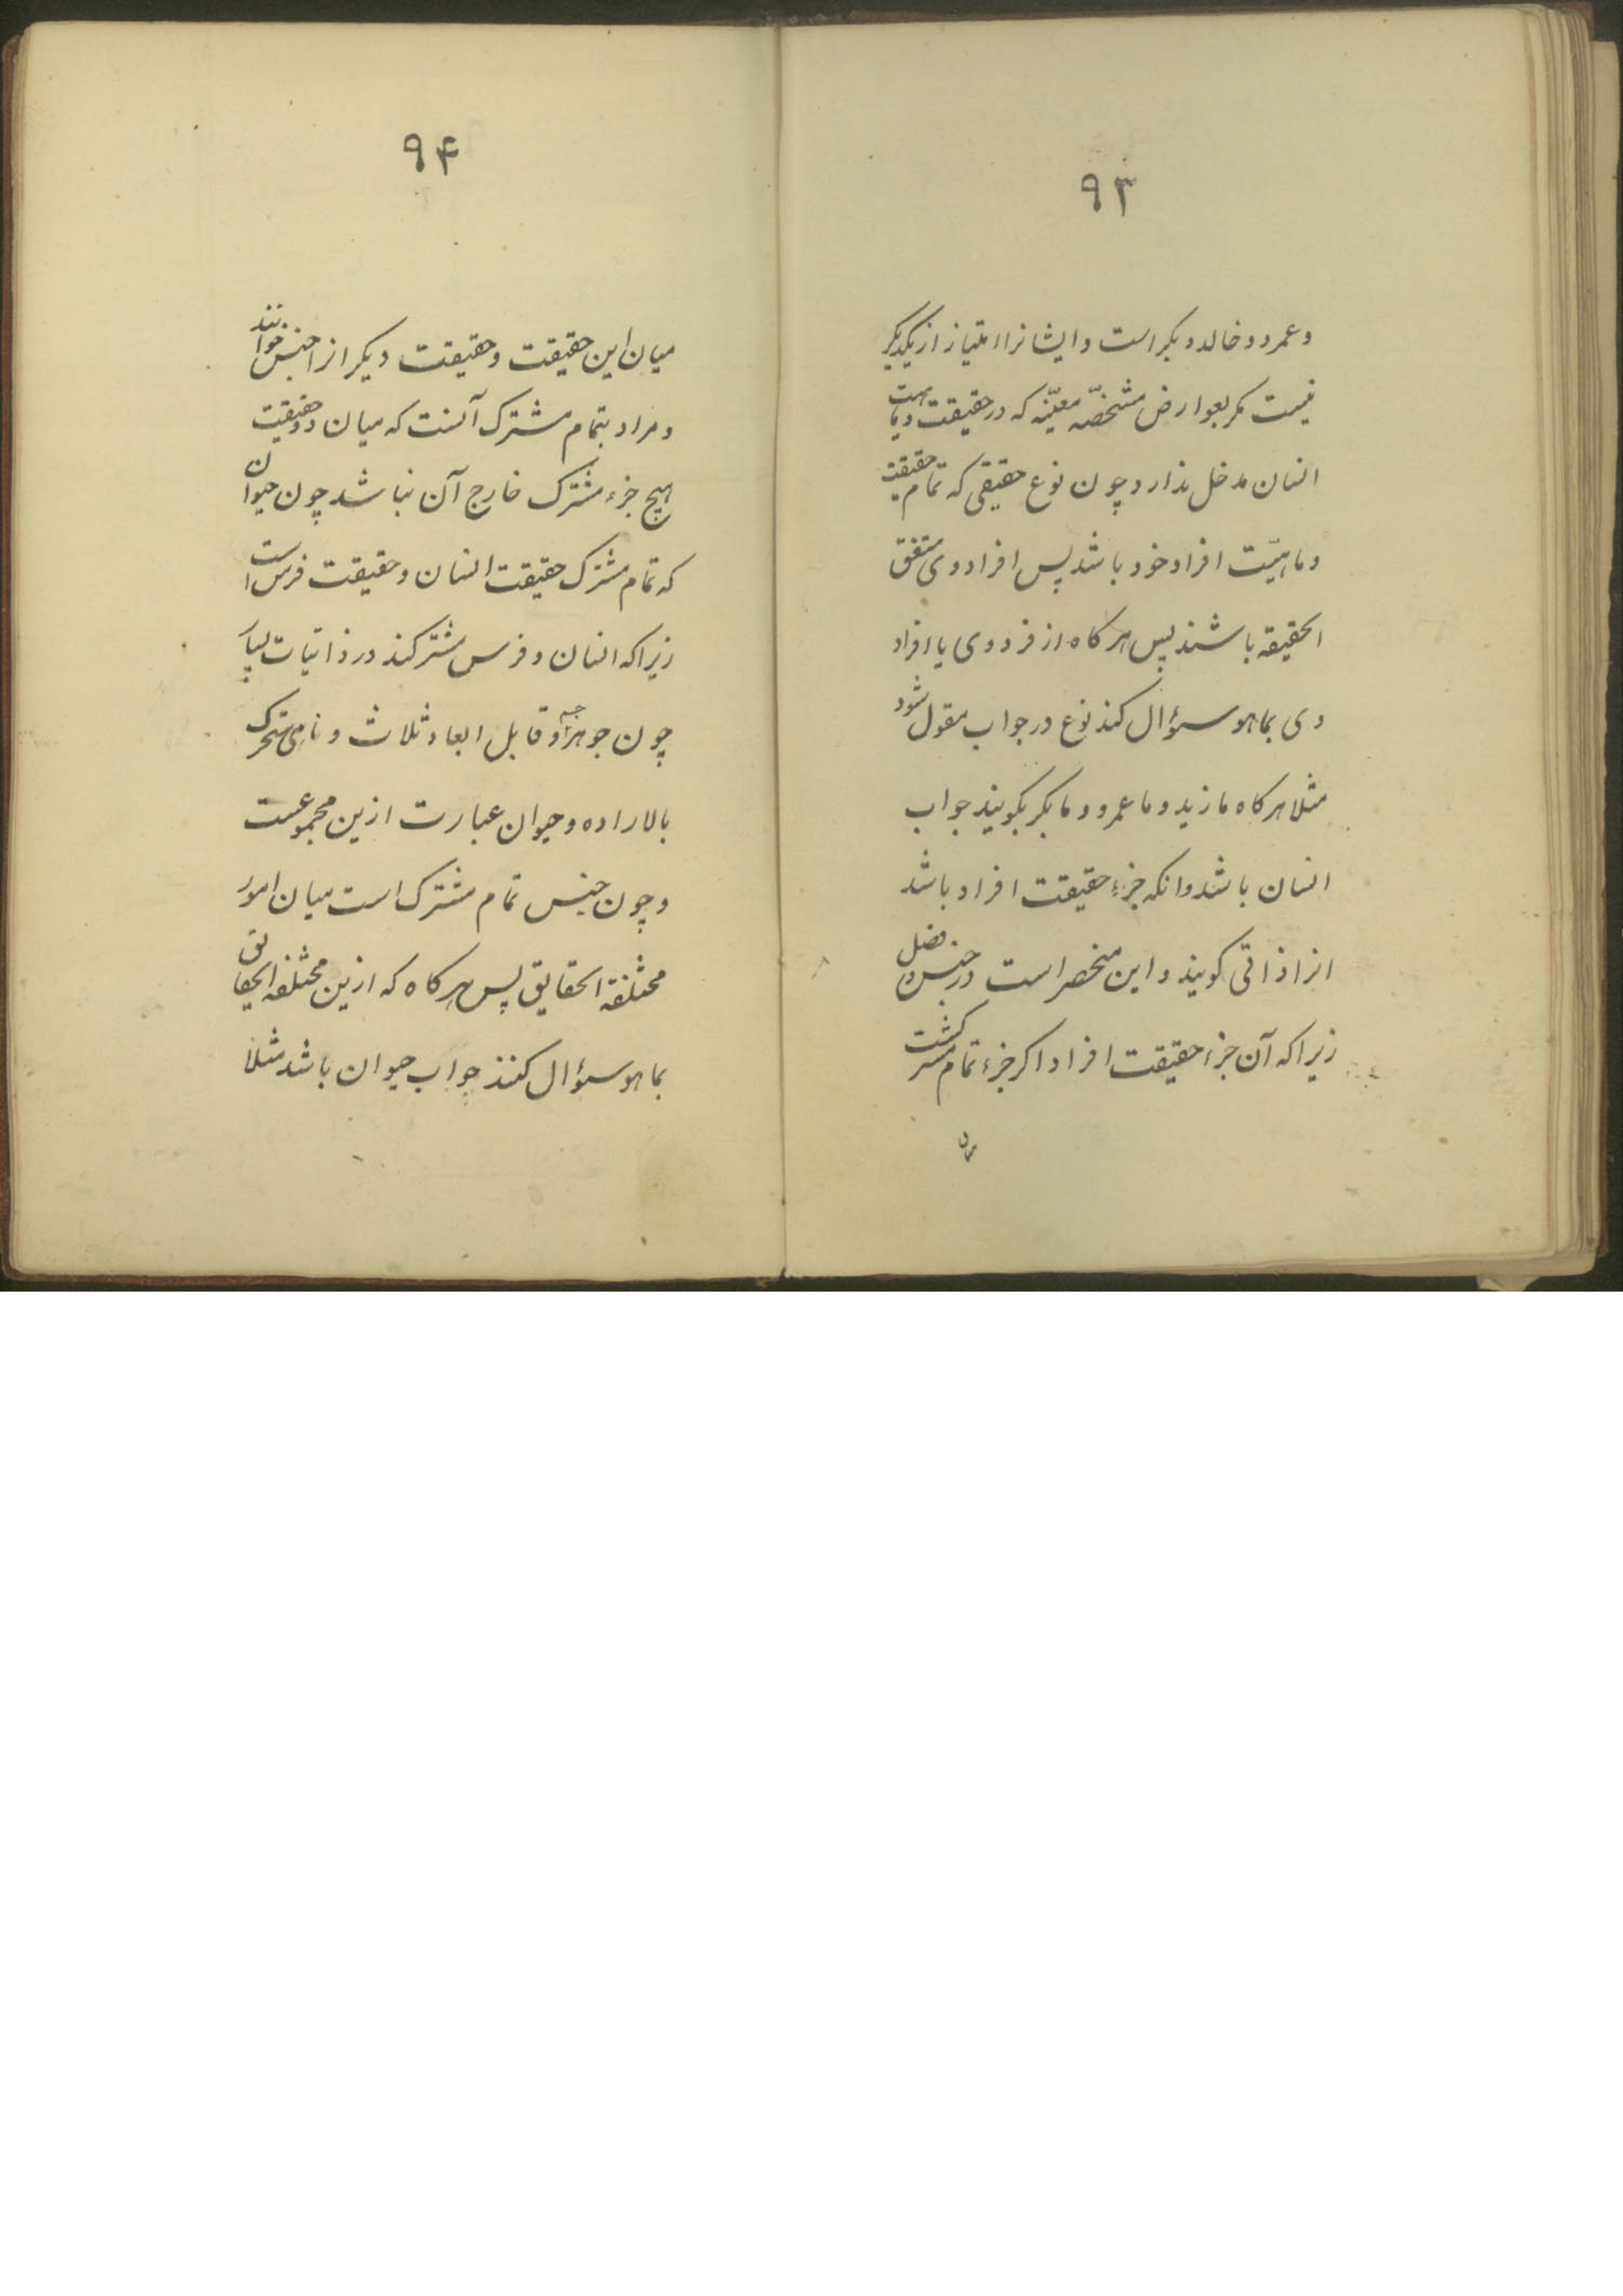 ۹۳
وعمرو وخالد وبکر است وایشانرا امتیاز از یکدیکر
نیست مکر بعوارض مشخصّه معیّنه که در حقیقت وماهیت
انسان مدخل ندارد وچون نوع حقیقی که تمام حقیقت
وماهیّت افراد خود باشد پس افراد وی متفق
الحقیقه باشند پس هرکاه از فرد وی یا افراد
وی بماهو سؤال کنند نوع در جواب مقول شود
مثلا هرکاه ما زید وما عمرو وما بکر بکویند جواب
انسان باشد وانکه جزء حقیقت افراد باشد
انرا ذاتی کویند واین منحصر است در جنس وفصل
زیراکه آن جزء حقیقت افراد اکر جزء تمام مشترکست
۹۴
میان این حقیقت وحقیقت دیکر انرا جنس خوانند
ومراد بتمام مشترک آنست که میان دو حقیقت
هیچ جزء مشترک خارج آن نباشد چون حیوان
که تمام مشترک حقیقت انسان وحقیقت فرس است
زیراکه انسان وفرس مشترکند در ذاتیات بسیار
چون جوهر وقابل ابعاد ثلاث ونامی متحرک
بالاراده وحیوان عبارت ازین مجموعست
وچون جنس تمام مشترک است میان امور
مختلفة الحقایق پس هرکاه که ازین مختلفه الحقایق
بماهو سؤال کنند جواب حیوان باشد مثلاً